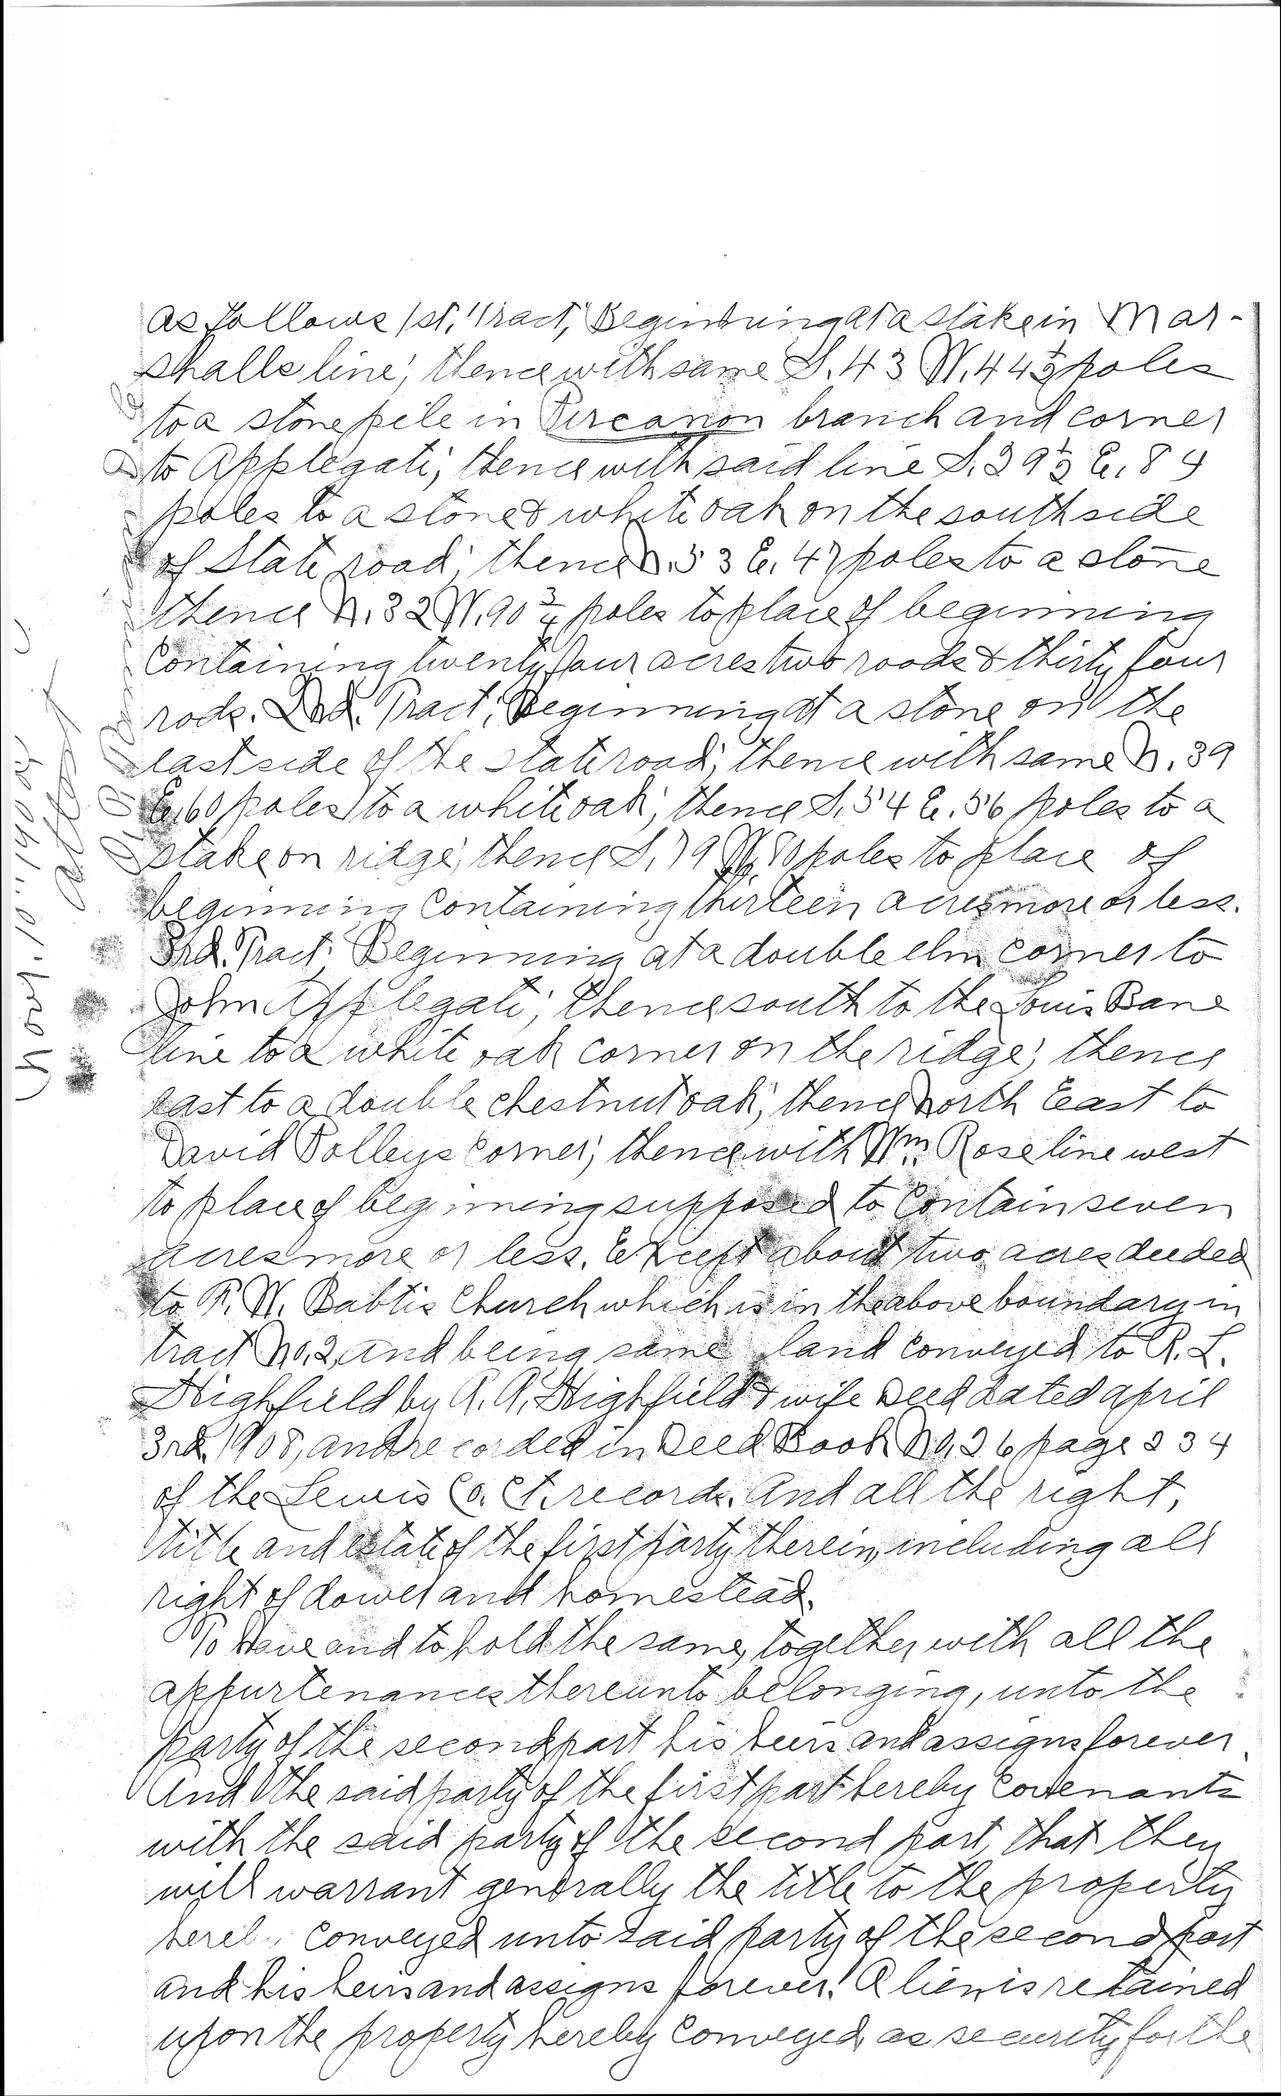 as follows 1st, Tract, Beginning at a stake in Mar-
shalls line; thence with same S. 43 W. 44½ poles
to a stone pile in branch and corner
to Applegate; thence with said line S. 39½ E. 84
poles to a stone & white oak on the south side
of State road; thence N. 53 E. 47 poles to a stone
thence N. 32 W. 90¾ poles to place of beginning
Containing twenty four acres two roods & thirty four
rods. 2nd. Tract; Beginning at a stone on the
east side of the state road; thence with same N. 39
E. 60 poles to a white oak; thence S. 54 E. 56 poles to a
stake on ridge; thence S. 79 W. 80 poles to place of
beginning Containing thirteen acres more or less.
3rd. Tract; Beginning at a double elm corner to
John Applegate; thence south to the Louis Bane
line to a white oak corner on the ridge; thence
east to a double chestnut oak; thence North East to
David Polleys corner; thence with Wm. Rose line west
to place of beginning supposed to Contain seven
acres more or less. Except about two acres deeded
to F. W. Babtis Church which is in the above boundary in
tract No. 2, and being same land conveyed to R. L.
Highfield by A. A. Highfield & wife Deed dated april
3rd. 1908, and recorded in Deed Book No. 36 page 234
of the Lewis Co. Ct. records. And all the right,
title and estate of the first party therein, including all
right of dower and homestead.
To have and to hold the same, together with all the
appurtenances thereunto belonging, unto the
party of the second part his heirs and assigns forever.
And the said party of the first part hereby Covenants
with the said party of the second part, that they
will warrant generally the title to the property
conveyed unto said party of the second part
and his heirs and assigns forever. A lien is retained
upon the property hereby Conveyed as security for the
Nov. 10" 19
attest